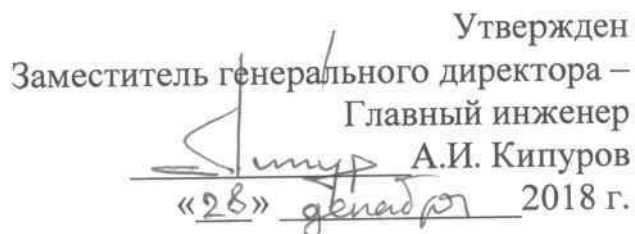 Утвержден
Заместитель генерального директора –
Главный инженер
А.И. Кипуров
«28» декабря 2018 г.